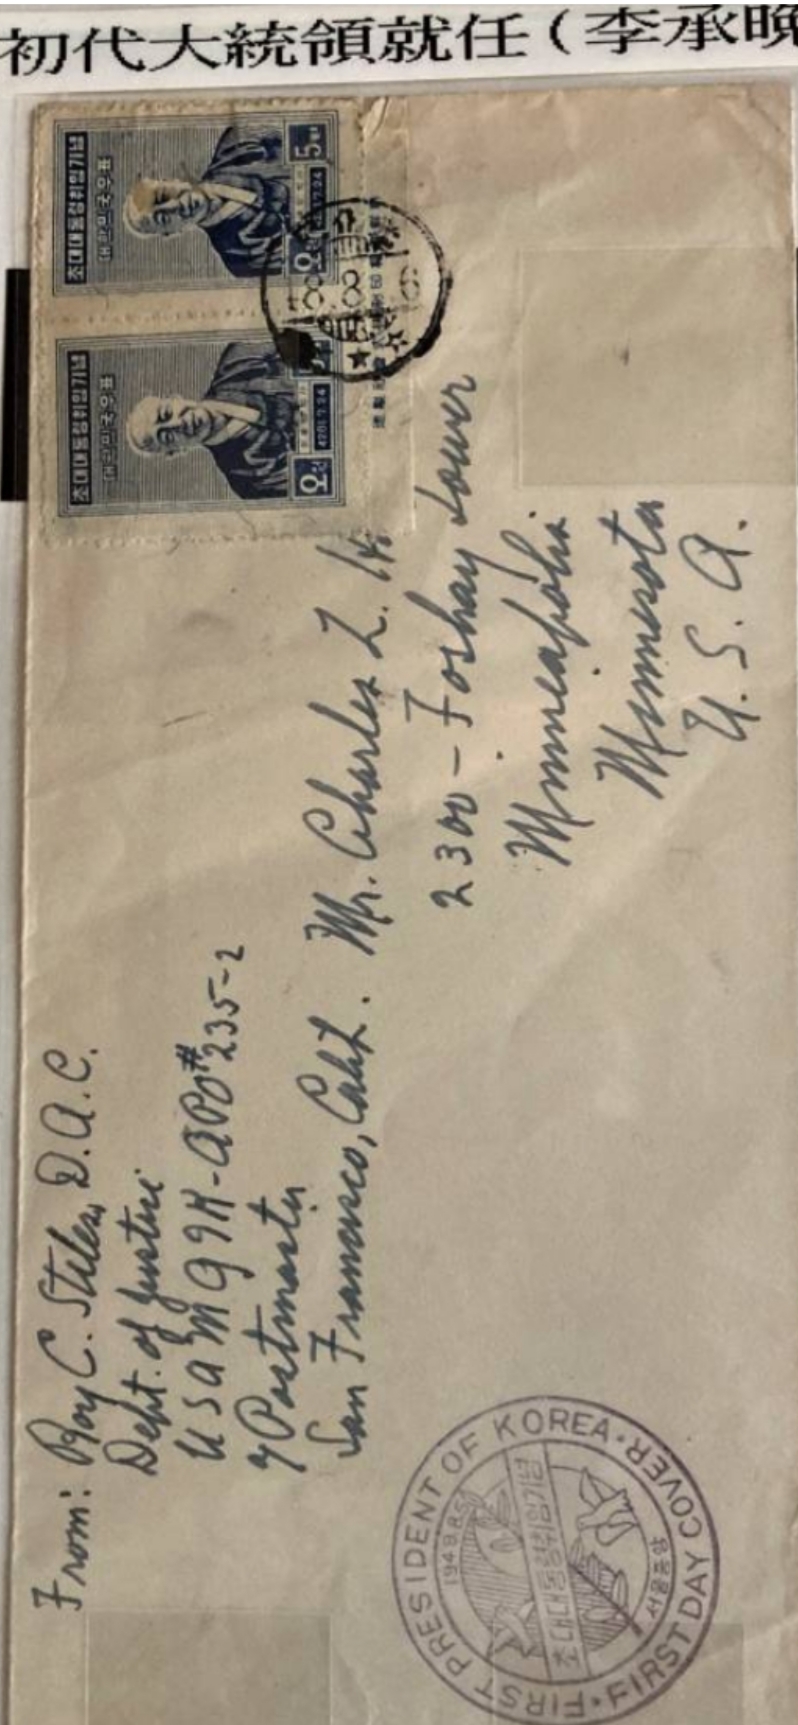 初代大統領就任(李承晩
초대대통령취임기념
대한민국우표
5
4281.7.24
초대대통령취임기념
대한민국우표
오
4281.7.24
From: Roy C. Stiles, D.A.C.
Dept. of Justice
USAMGIK-APO#235-2
Postmaster
San Francisco, Calif.
Mr. Charles L.
2300 - Foshay Tower
Minneapolis
Minnesota
U. S. A.
FIRST PRESIDENT OF KOREA · FIRST DAY COVER ·
1948.8.5
초대대통령취임기념
서울중앙